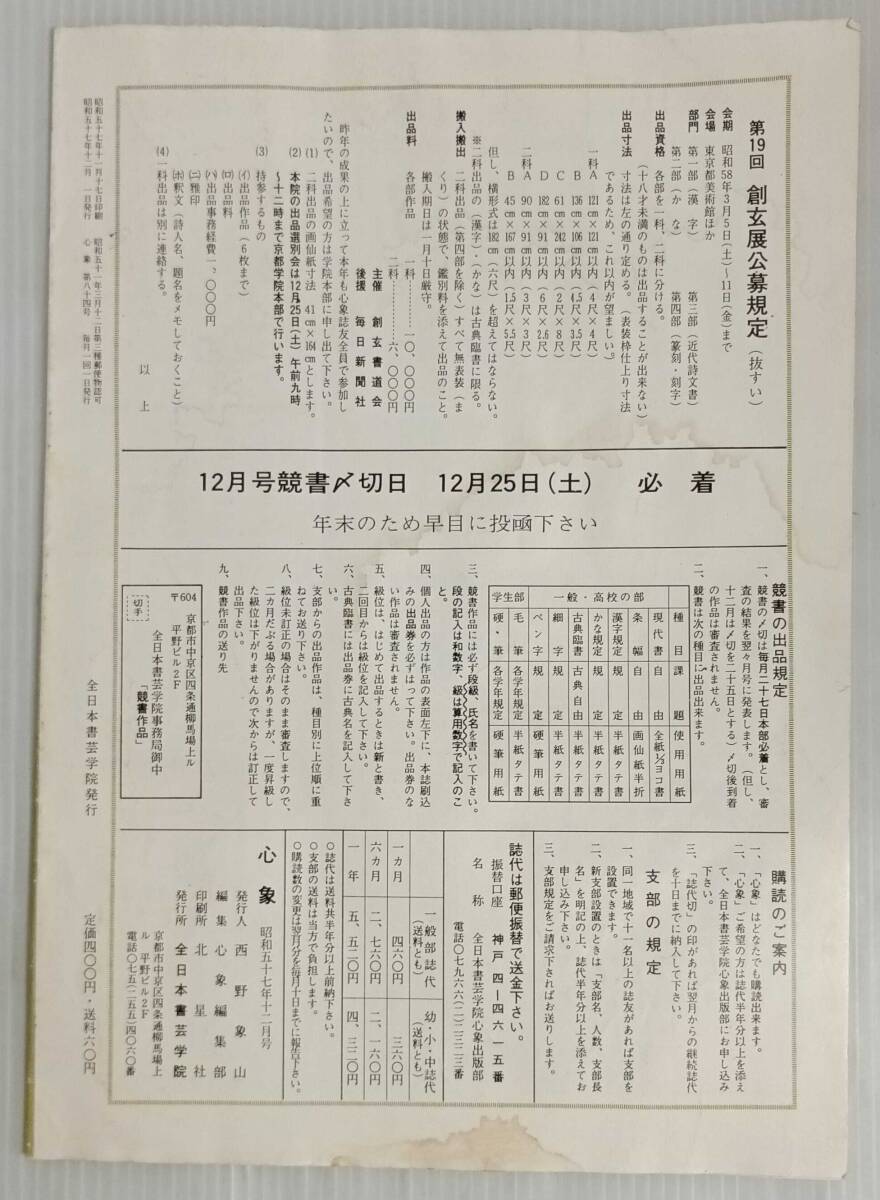 第19回 創玄展公募規定(抜すい)
会期 昭和58年3月5日(土)〜11日(金)まで
会場 東京都美術館ほか
部門 第一部(漢字) 第三部(近代詩文書)
第二部(かな) 第四部(篆刻・刻字)
出品資格 各部を一科、二科に分ける。
(十八才未満のものは出品することが出来ない)
出品寸法 寸法は左の通り定める。(表装枠仕上り寸法
であるため、これ以内が望ましい。)
一科A 121cm×121cm以内(4尺×4尺)
B 136cm×106cm以内(4.5尺×3.5尺)
C 61cm×242cm以内(2尺×8尺)
D 182cm×91cm以内(6尺×2.6尺)
二科A 90cm×91cm以内(3尺×3尺)
B 45cm×167cm以内(1.5尺×5.5尺)
但し、横形式は182cm(六尺)を超えてはならない。
※二科出品の(漢字)・(かな)は古典臨書に限る。
搬入搬出 二科出品(第四部を除く)すべて無表装(ま
くり)の状態で、鑑別料を添えて出品のこと。
搬入期日は一月十日厳守。
出品料 各部作品 一科………一〇、〇〇〇円
二科………六、〇〇〇円
主催 創玄書道会
後援 毎日新聞社
昨年の成果の上に立って本年も心象誌友全員で参加し
たいので、出品希望の方は学院本部に申し出て下さい。
(1) 二科出品の画仙紙寸法 41cm×164cmとします。
(2) 本院の出品選別会は12月25日(土)午前九時
〜十二時まで京都学院本部で行います。
(3) 持参するもの
(イ)出品作品(6枚まで)
(ロ)出品料
(ハ)出品事務経費一、〇〇〇円
(ニ)雅印
(ホ)釈文(詩人名、題名をメモしておくこと)
(4) 一科出品は別に連絡する。
以上
昭和五十七年十一月十七日印刷 昭和五十一年三月十二日第三種郵便物認可
昭和五十七年十二月一日発行 心象 第八十四号 毎月一回一日発行
12月号競書〆切日 12月25日(土) 必着
年末のため早目に投凾下さい
競書の出品規定
一、競書の〆切は毎月二十七日本部必着とし、審
査の結果を翌々月号に発表します。(但し、
十二月は〆切を二十五日とする)〆切後到着
の作品は審査されません。
二、競書は次の種目に出品出来ます。
一般・高校の部
種目 課題 使用用紙
現代書 自由 全紙1/2ヨコ書
条幅 自由 画仙紙半折
漢字規定 規定 半紙タテ書
かな規定 規定 半紙タテ書
古典臨書 古典自由 半紙タテ書
細字 規定 半紙タテ書
ペン字 規定 硬筆用紙
学生部
毛筆 各学年規定 半紙タテ書
硬・筆 各学年規定 硬筆用紙
三、競書作品には必ず段級、氏名を書いて下さい。
段の記入は和数字、級は算用数字で記入のこ
と。
四、個人出品の方は作品の表面左下に、本誌刷込
みの出品券を必ずはって下さい。出品券のな
い作品は審査されません。
五、級位は、はじめて出品するときは新と書き、
二回目からは級位を記入して下さい。
六、古典臨書には出品券に古典名を記入して下さ
い。
七、支部からの出品作品は、種目別に上位順に重
ねてお送り下さい。
八、級位未訂正の場合はそのまま審査しますので、
二カ月だぶる場合がありますが、一度昇級し
た級位は下がりませんので次からは訂正して
出品下さい。
九、競書作品の送り先
〒604
京都市中京区四条通柳馬場上ル
平野ビル2F
全日本書芸学院事務局御中
「競書作品」
切手
購読のご案内
一、「心象」はどなたでも購読出来ます。
二、「心象」ご希望の方は誌代半分以上を添え
て、全日本書芸学院心象出版部にお申し込み
下さい。
三、「誌代切」の印があれば翌月からの継続誌代
を十日までに納入して下さい。
支部の規定
一、同一地域で十一名以上の誌友があれば支部を
設置できます。
二、新支部設置のときは「支部名、人数、支部長
名」を明記の上、誌代半年分以上を添えてお
申し込み下さい。
三、支部規定をご請求下さればお送りします。
誌代は郵便振替で送金下さい。
振替口座 神戸四―四六一五番
名称 全日本書芸学院心象出版部
電話〇七九六六(二)二三二三番
一般部誌代(送料とも) 幼・小・中誌代(送料とも)
一カ月 四六〇円 三六〇円
六カ月 二、七六〇円 二、一六〇円
一年 五、五二〇円 四、三二〇円
○誌代は送料共半年分以上前納下さい。
○支部の送料は当方で負担します。
○購読数の変更は翌月分を毎月十日までに報告下さい。
心象 昭和五十七年十二月号
発行人 西野象山
編集 心象編集部
印刷所 北星社
発行所 全日本書芸学院
京都市中京区四条通柳馬場上
ル 平野ビル2F
電話〇七五(二五五)四〇六〇番
全日本書芸学院発行 定価四〇〇円・送料六〇円